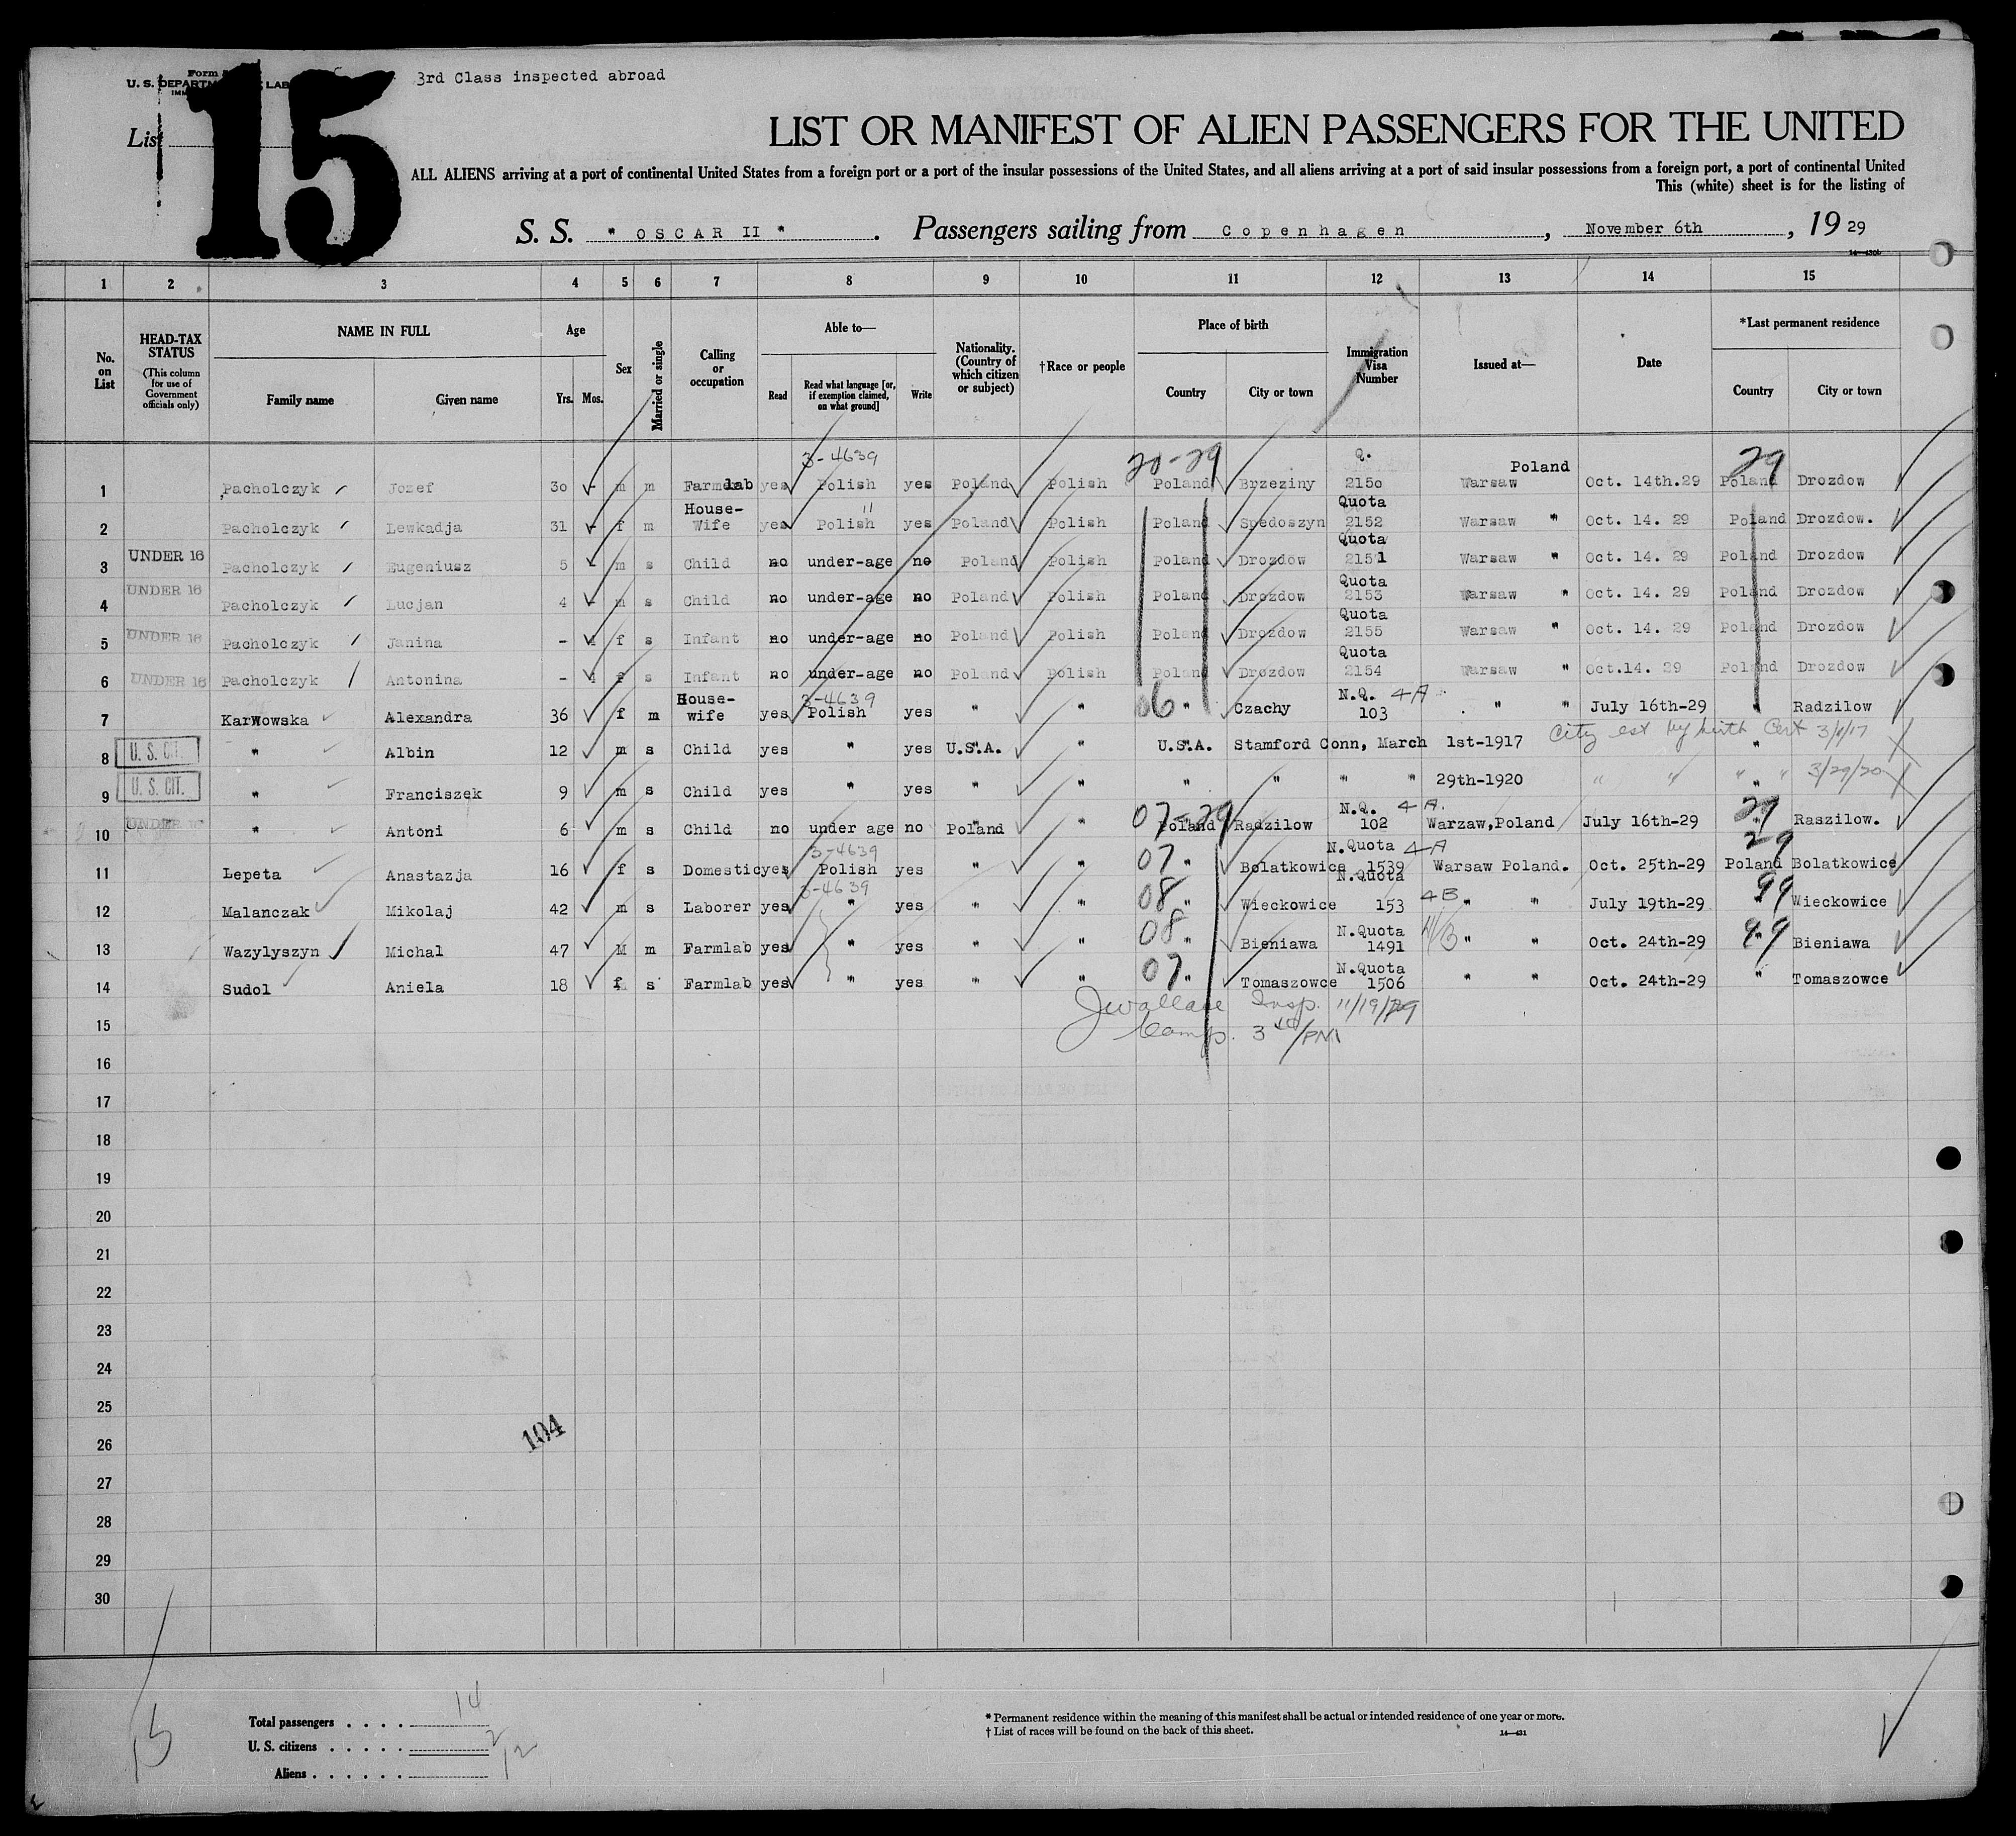 3rd Class inspected abroad
Form
U. S. DEPARTM LAB
List
15
LIST OR MANIFEST OF ALIEN PASSENGERS FOR THE UNITED
ALL ALIENS arriving at a port of continental United States from a foreign port or a port of the insular possessions of the United States, and all aliens arriving at a port of said insular possessions from a foreign port, a port of continental United
This (white) sheet is for the listing of
S. S. " OSCAR II " . Passengers sailing from Copenhagen , November 6th , 19 29
1 2 3 4 5 6 7 8 9 10 11 12 13 14 15
No. on List
HEAD-TAX STATUS (This column for use of Government officials only)
NAME IN FULL Family name Given name
Age Yrs. Mos.
Sex
Married or single
Calling or occupation
Able to— Read Read what language [or, if exemption claimed, on what ground] Write
Nationality. (Country of which citizen or subject)
†Race or people
Place of birth Country City or town
Immigration Visa Number
Issued at—
Date
*Last permanent residence Country City or town
3-4639 20-29 Q. Poland 29
1 Pacholczyk Jozef 30 - m m Farmlab yes Polish yes Poland Polish Poland Brzeziny 2150 Warsaw Oct. 14th.29 Poland Drozdow
House- " Quota
2 Pacholczyk Lewkadja 31 - f m Wife yes Polish yes Poland Polish Poland Spedoszyn 2152 Warsaw " Oct. 14. 29 Poland Drozdow.
Quota
3 UNDER 16 Pacholczyk Eugeniusz 5 - m s Child no under-age no Poland Polish Poland Drozdow 2151 Warsaw " Oct. 14. 29 Poland Drozdow
Quota
4 UNDER 16 Pacholczyk Lucjan 4 - m s Child no under-age no Poland Polish Poland Drozdow 2153 Warsaw " Oct. 14. 29 Poland Drozdow
Quota
5 UNDER 16 Pacholczyk Janina - f s Infant no under-age no Poland Polish Poland Drozdow 2155 Warsaw " Oct. 14. 29 Poland Drozdow
Quota
6 UNDER 16 Pacholczyk Antonina - f s Infant no under-age no Poland Polish Poland Drozdow 2154 Warsaw " Oct.14. 29 Poland Drozdow
House- 3-4639 06 N.Q. 4A
7 Karwowska Alexandra 36 f m wife yes Polish yes " " " Czachy 103 " " July 16th-29 " Radzilow
8 U. S. CIT. " Albin 12 m s Child yes " yes U.S.A. " U.S.A. Stamford Conn, March 1st-1917 City est by birth Cert 3/1/17 "
9 U. S. CIT. " Franciszek 9 m s Child yes " yes " " " " " " 29th-1920 " " " " 3/29/20 "
07-29 N.Q. 4A. 29
10 UNDER 16 " Antoni 6 m s Child no under age no Poland " Poland Radzilow 102 Warzaw,Poland July 16th-29 " Raszilow.
3-4639 07 N.Quota 4A 29
11 Lepeta Anastazja 16 f s Domestic yes Polish yes " " " Bolatkowice 1539 Warsaw Poland. Oct. 25th-29 Poland Bolatkowice
3-4639 08 N.Quota 4B 99
12 Malanczak Mikolaj 42 m s Laborer yes " yes " " Wieckowice 153 " " July 19th-29 Wieckowice
08 N.Quota 99
13 Wazylyszyn Michal 47 M m Farmlab yes " yes " " " Bieniawa 1491 " " Oct. 24th-29 " Bieniawa
07 N.Quota
14 Sudol Aniela 18 f s Farmlab yes " yes " " " Tomaszowce 1506 " " Oct. 24th-29 " Tomaszowce
15 JWallace Insp. 11/19/29
Comp. 3 40/PM
16
17
18
19
20
21
22
23
24
25
104
26
27
28
29
30
15
Total passengers . . . . 14
U. S. citizens . . . . . 2
Aliens . . . . . . 12
* Permanent residence within the meaning of this manifest shall be actual or intended residence of one year or more.
† List of races will be found on the back of this sheet. 14—431